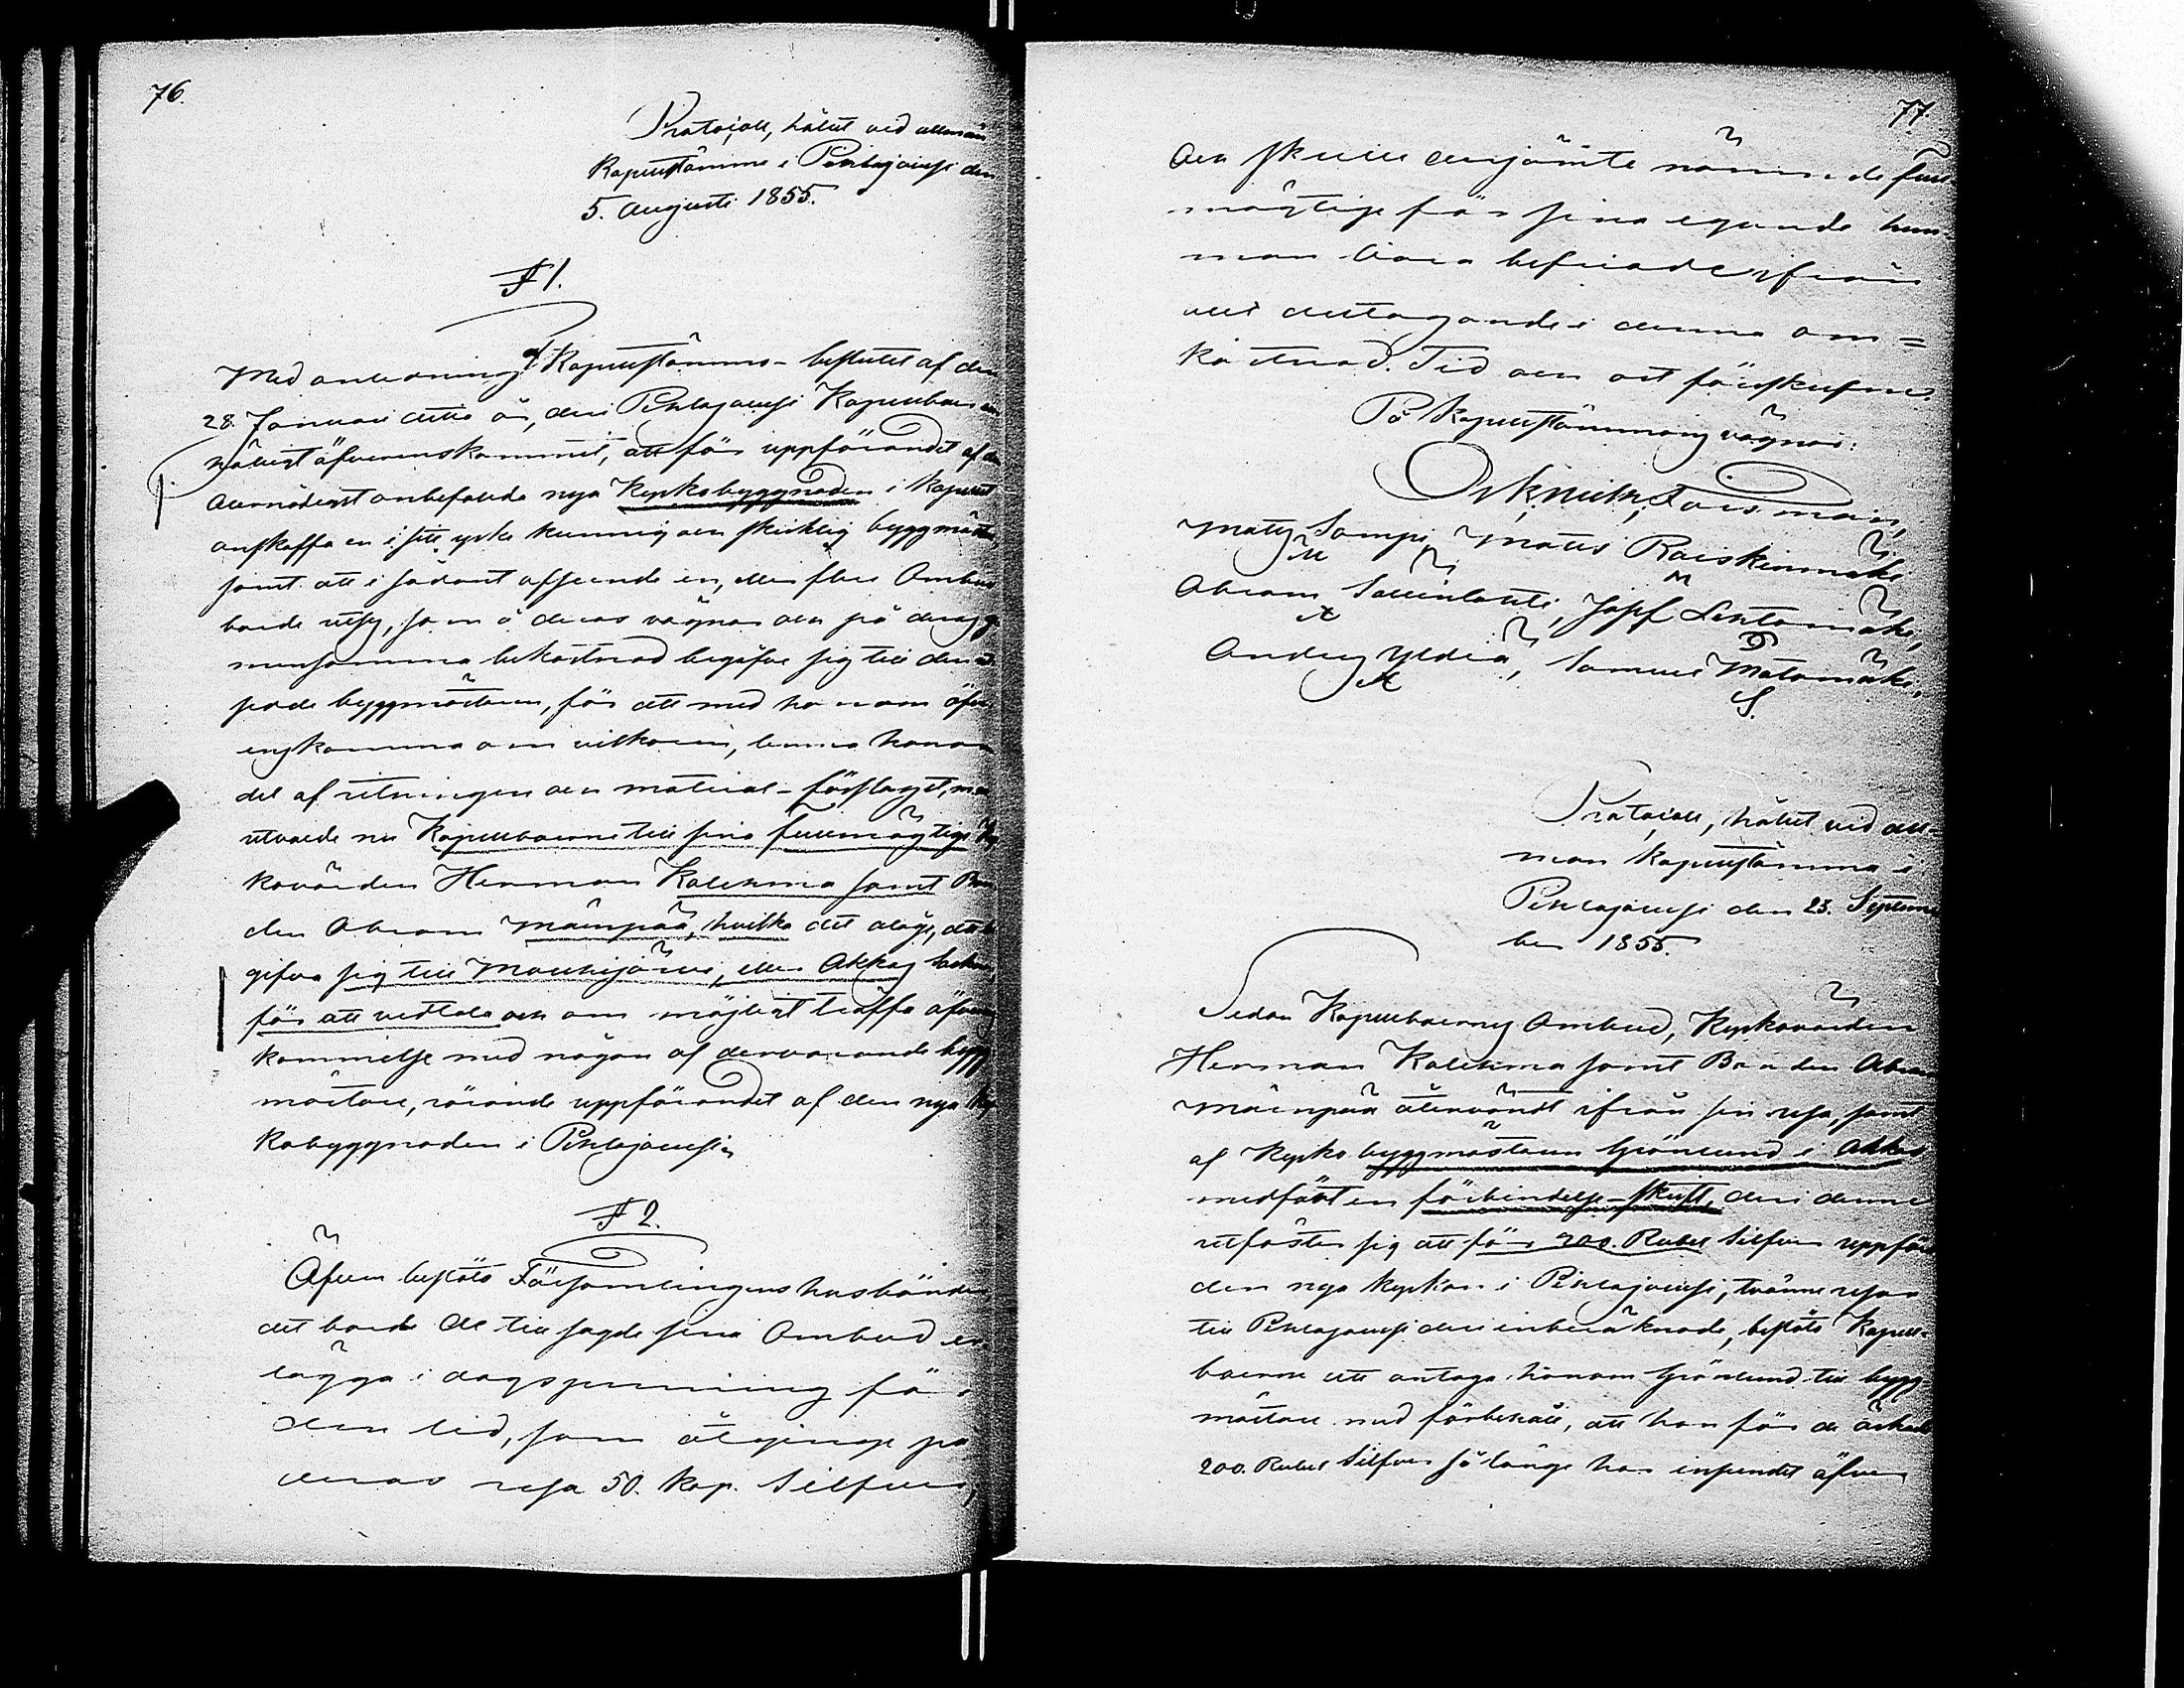 76.
Protocoll, hållit vid allmän
Kapellstämma i Pihlajavesi den
5. Augusti 1855.
§ 1.
Med anledning af Kapellstämmo-beslutet af den
28. Januari detta år, deri Pihlajavesi Kapellboar
nåkist äfverenskommit, att för uppförandet af den
allernådigst anbefallda nya Kyrkobyggnaden i Kapellet
anskaffa en i sitt yrke kunnig och skicklig byggmästare,
samt att i sådant afseende en, eller flere Ombud
borde utses, som å deras vägnar och på deras ge-
mensamma bekostnad begåfve sig till den
byggmästaren, för att med honom äfver-
enskomma om vilkoren, lemna honom
del af ritningen och material-förslaget,
utvalde nu Kapellboerne till sina fullmägtige Kyr-
kovärden Herman Kalehma samt Bon-
den Abram Mäenpää, hvilka det ålåge, att be-
gifva sig till Mouhijärvi, eller Akkas Socknar,
för att vidtala och om möjligt träffa äfverens-
kommelse med någon af dervarande bygg-
mästare, rörande uppförandet af den nya Kyr-
kobyggnaden i Pihlajavesi.
§ 2.
Äfven beslöts Församlingens husbönder
det borde de till sagde sina Ombud er-
lägga i dagspenning för
den tid, som åtginge på
deras resa 50. Kop. Silfver,
77.
och skulle derjämte nämnde full-
mägtige för sina egande hem-
man vara befriade ifrån
allt deltagande i denna om=
kostnad. Tid och ort förutskrefne.
På Kapellstämmans vägnar:
Forsman,
Matts Sampi, Matts Raiskinmäki,
M M
Abram Saukilahti, Josef Lehtomäki,
A
Anders Yldiä, Samuel Matomäki.
A S.
Protocoll, hållit vid all-
män Kapellstämma i
Pihlajavesi den 23. Septem-
ber 1855.
Sedan Kapellboernes Ombud, Kyrkovärden
Herman Kalehma samt Bonden Abram
Mäenpää återvändt ifrån sin resa, samt
af Kyrko byggmästaren Grönlund i Akkas
medfört en förbindelse-skrift, deri denne
utfäster sig att för 200. Rubel Silfver uppföra
den nya kyrkan i Pihlajavesi, tvänne resor
till Pihlajavesi deri inberäknade, beslöts Kapell-
boerne att antaga honom Grönlund till bygg-
mästare med förbehåll, att han för de äskade
200. Rubel Silfver så länge han